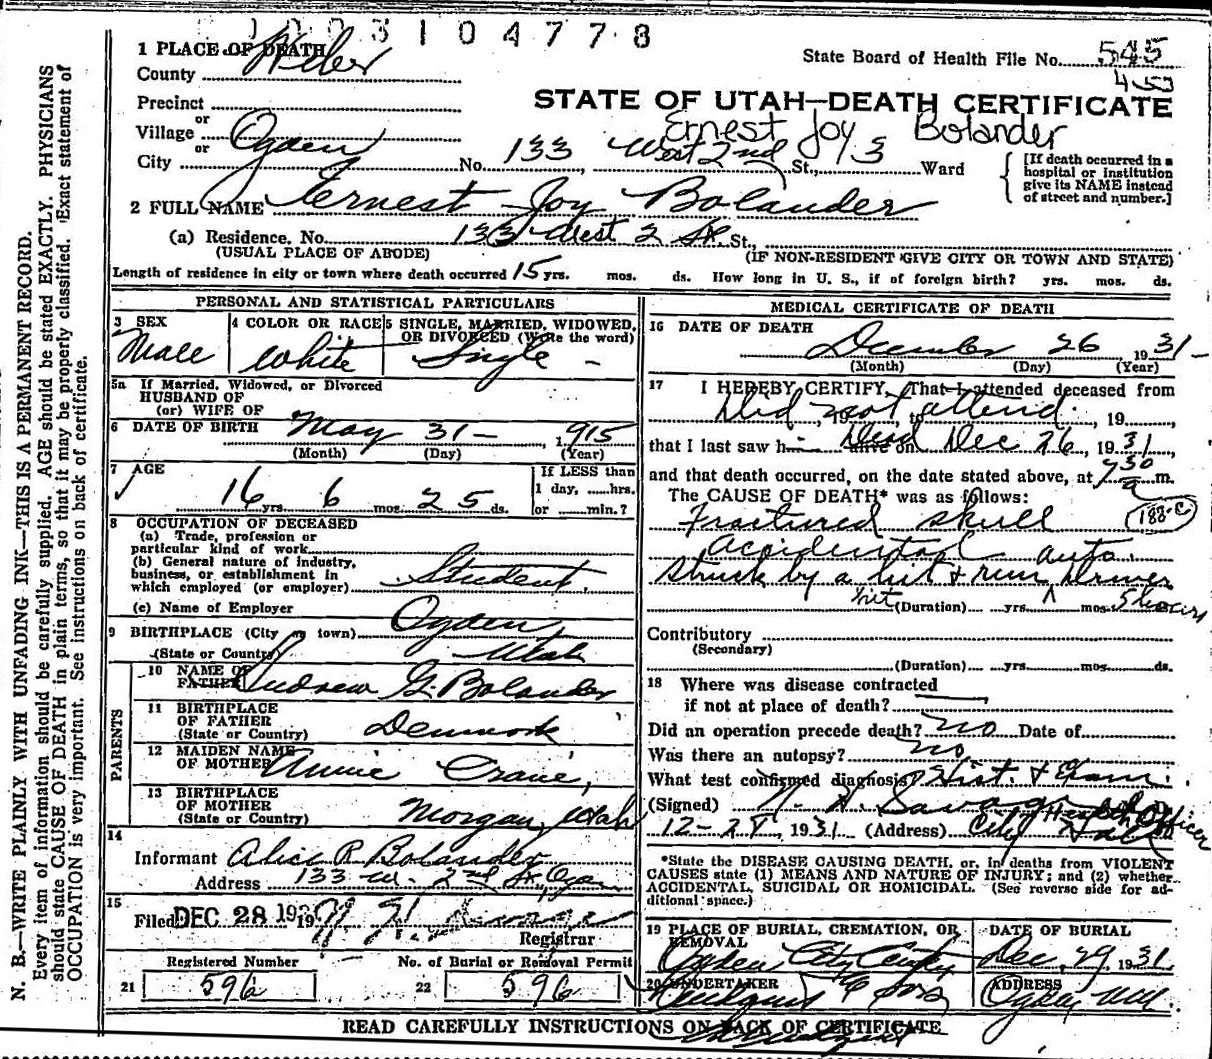 1003104778
1 PLACE OF DEATH
County Weber
State Board of Health File No. 545
453
Precinct
or
Village
or
City Ogden
STATE OF UTAH—DEATH CERTIFICATE
Ernest Joy Bolander
No. 133 West 2nd St., 3 Ward
[If death occurred in a hospital or institution give its NAME instead of street and number.]
2 FULL NAME Ernest Joy Bolander
(a) Residence. No. 133 West 2 St. St.,
(USUAL PLACE OF ABODE) (IF NON-RESIDENT GIVE CITY OR TOWN AND STATE)
Length of residence in city or town where death occurred 15 yrs. mos. ds. How long in U. S., if of foreign birth? yrs. mos. ds.
PERSONAL AND STATISTICAL PARTICULARS
3 SEX Male
4 COLOR OR RACE White
5 SINGLE, MARRIED, WIDOWED, OR DIVORCED (Write the word) Single –
5a If Married, Widowed, or Divorced
HUSBAND OF
(or) WIFE OF
6 DATE OF BIRTH May 31– 1915
(Month) (Day) (Year)
7 AGE
16 yrs. 6 mos. 25 ds.
If LESS than
1 day, ......hrs.
or ......min.?
8 OCCUPATION OF DECEASED
(a) Trade, profession or
particular kind of work
(b) General nature of industry,
business, or establishment in
which employed (or employer) Student
(c) Name of Employer
9 BIRTHPLACE (City or town) Ogden
(State or Country) Utah
PARENTS
10 NAME OF FATHER Andrew G. Bolander
11 BIRTHPLACE
OF FATHER
(State or Country) Denmark
12 MAIDEN NAME
OF MOTHER Annie Crane,
13 BIRTHPLACE
OF MOTHER
(State or Country) Morgan, Utah
14
Informant Alice R. Bolander
Address 133 W. 2nd St., Ogden
15
Filed DEC 28 193 19 Registrar
Registered Number
21 596
No. of Burial or Removal Permit
22 596
MEDICAL CERTIFICATE OF DEATH
16 DATE OF DEATH
December 26 1931–
(Month) (Day) (Year)
17 I HEREBY CERTIFY, That I attended deceased from
Did not attend. , 19 , to , 19 ,
that I last saw h alive on Dead Dec 26, 1931,
and that death occurred, on the date stated above, at 7 30 a m.
The CAUSE OF DEATH* was as follows:
Fractured skull 188-c
accidental auto.
struck by a hit + run driver
(Duration) yrs. mos. 5 hours
Contributory
(Secondary)
(Duration) yrs. mos. ds.
18 Where was disease contracted
if not at place of death?
Did an operation precede death? no Date of
Was there an autopsy? no
What test confirmed diagnosis? Hist. & Exam.
(Signed) Savage City Health Officer
12-28, 1931 (Address) City Hall
*State the DISEASE CAUSING DEATH, or, in deaths from VIOLENT
CAUSES state (1) MEANS AND NATURE OF INJURY; and (2) whether
ACCIDENTAL, SUICIDAL OR HOMICIDAL. (See reverse side for ad-
ditional space.)
19 PLACE OF BURIAL, CREMATION, OR REMOVAL
Ogden City Cemetery
DATE OF BURIAL
Dec. 29, 1931.
20 UNDERTAKER
Lindquist & Sons
ADDRESS
Ogden Utah.
READ CAREFULLY INSTRUCTIONS ON BACK OF CERTIFICATE
N. B.—WRITE PLAINLY WITH UNFADING INK—THIS IS A PERMANENT RECORD.
Every item of information should be carefully supplied. AGE should be stated EXACTLY. PHYSICIANS
should state CAUSE OF DEATH in plain terms, so that it may be properly classified. Exact statement of
OCCUPATION is very important. See instructions on back of certificate.